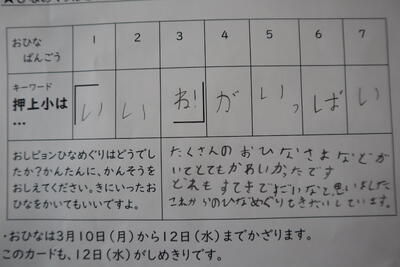 おひな
ばんごう
1 2 3 4 5 6 7
キーワード
押上小は
…
「い い ね!」 が いっ ぱ い
おしピョンひなめぐりはどうでし
たか?かんたんに、かんそうを
おしえてください。きにいったお
ひなをかいてもいいですよ。
たくさんの おひなさまなどが
いてとてもかわいかったです
どれも すてきですごいなと思いました
これからのひなめぐりもきたいしています。
・おひなは3月10日(月)から12日(水)までかざります。
このカードも、12日(水)がしめきりです。